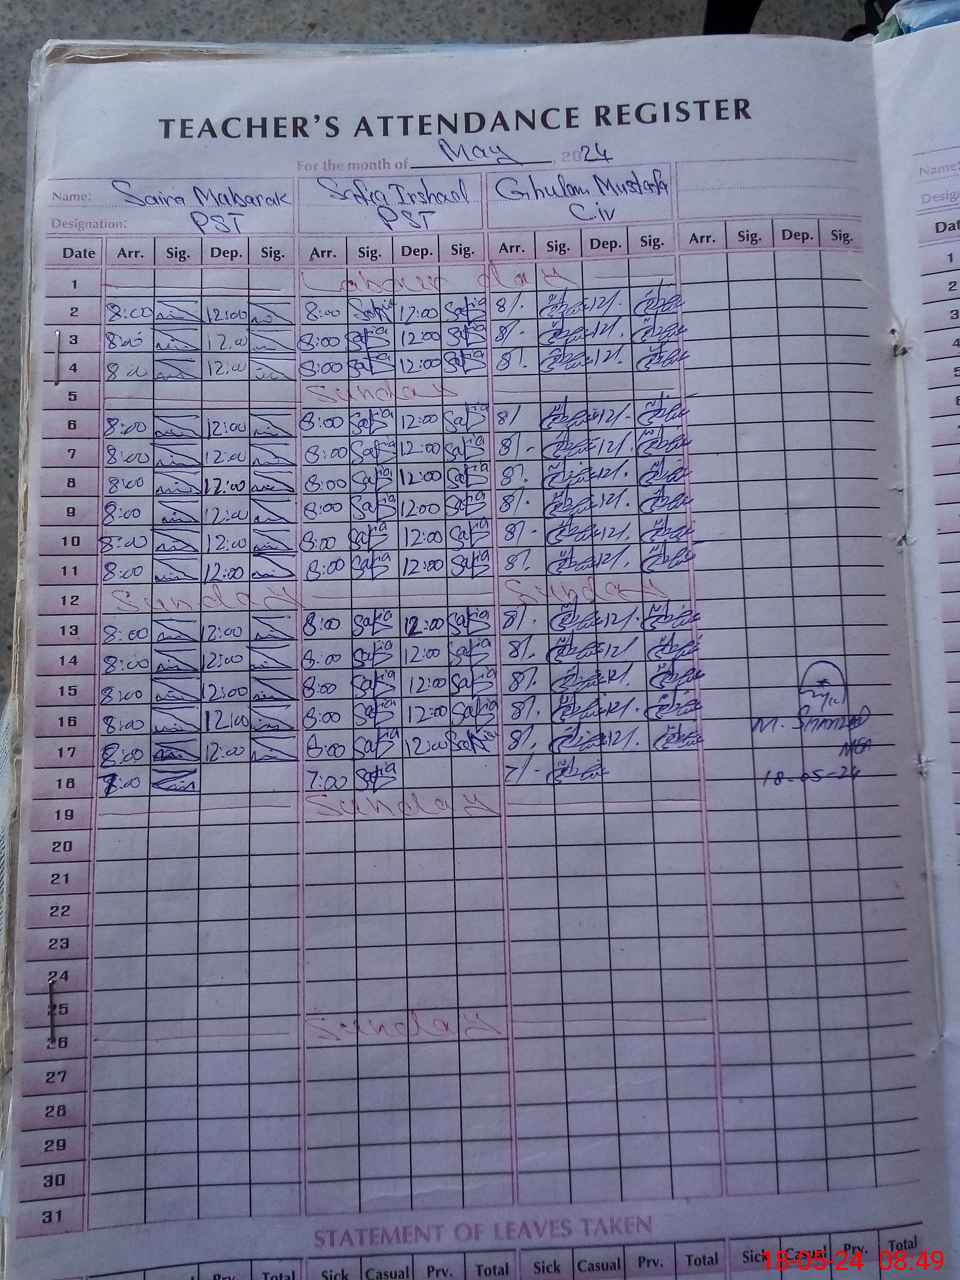 TEACHER'S ATTENDANCE REGISTER
For the month of May, 2024
Name: Saira Mabarak Safia Irshad Ghulam Mustafa Name:
Designation: PST PST Civ
Date Arr. Sig. Dep. Sig. Arr. Sig. Dep. Sig. Arr. Sig. Dep. Sig. Arr. Sig. Dep. Sig.
1 Labour day
2 8:00 12:00 8:00 Safia 12:00 Safia 8/. 12/.
3 8:00 12:00 8:00 Safia 12:00 Safia 8/- 12/.
4 8:00 12:00 8:00 Safia 12:00 Safia 8/. 12/.
5 Sunday
6 8:00 12:00 8:00 Safia 12:00 Safia 8/ 12/-
7 8:00 12:00 8:00 Safia 12:00 Safia 8/- 12/.
8 8:00 12:00 8:00 Safia 12:00 Safia 8/. 12/.
9 8:00 12:00 8:00 Safia 12:00 Safia 8/. 12/.
10 8:00 12:00 8:00 Safia 12:00 Safia 8/- 12/.
11 8:00 12:00 8:00 Safia 12:00 Safia 8/. 12/.
12 Sunday Sunday
13 8:00 12:00 8:00 Safia 12:00 Safia 8/. 12/.
14 8:00 12:00 8:00 Safia 12:00 Safia 8/. 12/
15 8:00 12:00 8:00 Safia 12:00 Safia 8/. 12/.
16 8:00 12:00 8:00 Safia 12:00 Safia 8/. 12/.
17 8:00 12:00 8:00 Safia 12:00 Safia 8/. 12/.
18 7:00 7:00 Safia 7/- 18-05-24
19 Sunday
20
21
22
23
24
25
26 Sunday
27
28
29
30
31
STATEMENT OF LEAVES TAKEN
Prv. Total Sick Casual Prv. Total Sick Casual Prv. Total Sick Casual Prv. Total
18-05-24 08:49